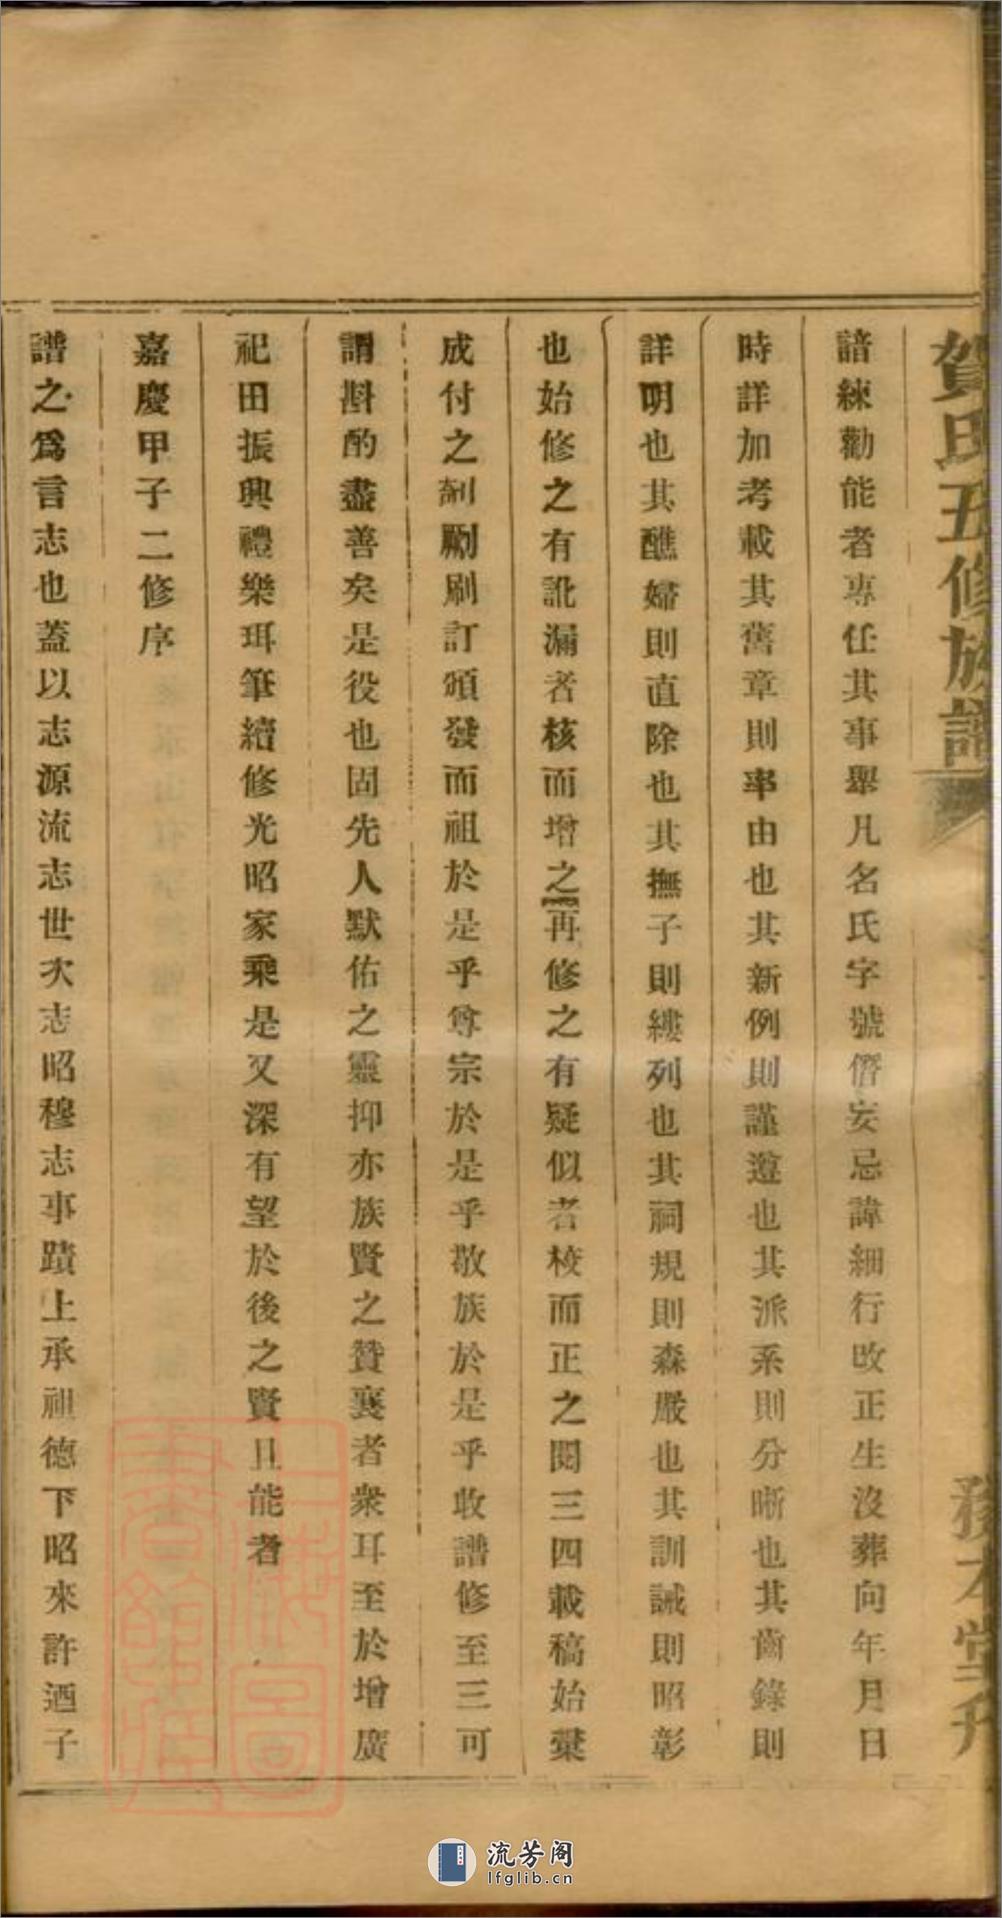 賀氏五修族譜
務本堂
諳練勸能者專任其事舉凡名氏字號僭妄忌諱細行改正生沒葬向年月日
時詳加考載其舊章則率由也其新例則謹遵也其派系則分晰也其齒錄則
詳明也其醮婦則直除也其撫子則縷列也其祠規則森嚴也其訓誡則昭彰
也始修之有訛漏者核而增之再修之有疑似者校而正之閱三四載稿始彙
成付之剞劂刷訂頒發而祖於是乎尊宗於是乎敬族於是乎收譜修至三可
謂斟酌盡善矣是役也固先人默佑之靈抑亦族賢之贊襄者衆耳至於增廣
祀田振興禮樂珥筆續修光昭家乘是又深有望於後之賢且能者
嘉慶甲子二修序
譜之爲言志也蓋以志源流志世次志昭穆志事蹟上承祖德下昭來許迺子
上海圖書館藏
流芳阁
lfglib.cn